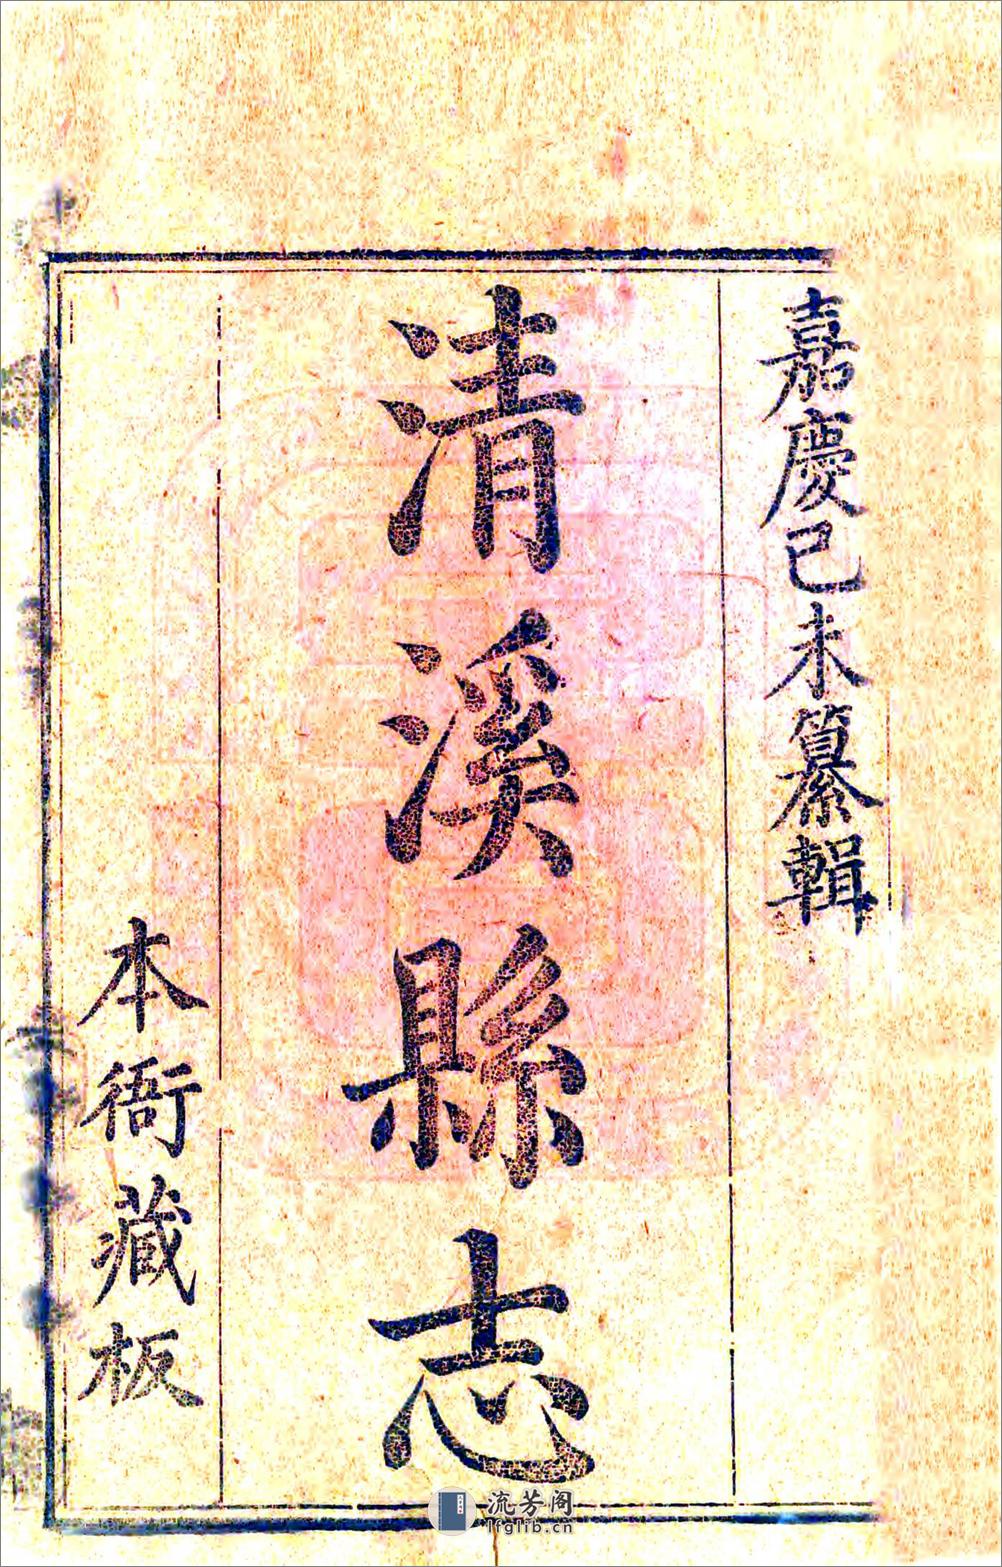 嘉慶己未纂輯
清溪縣志
本衙藏板
流芳阁
lfglib.cn